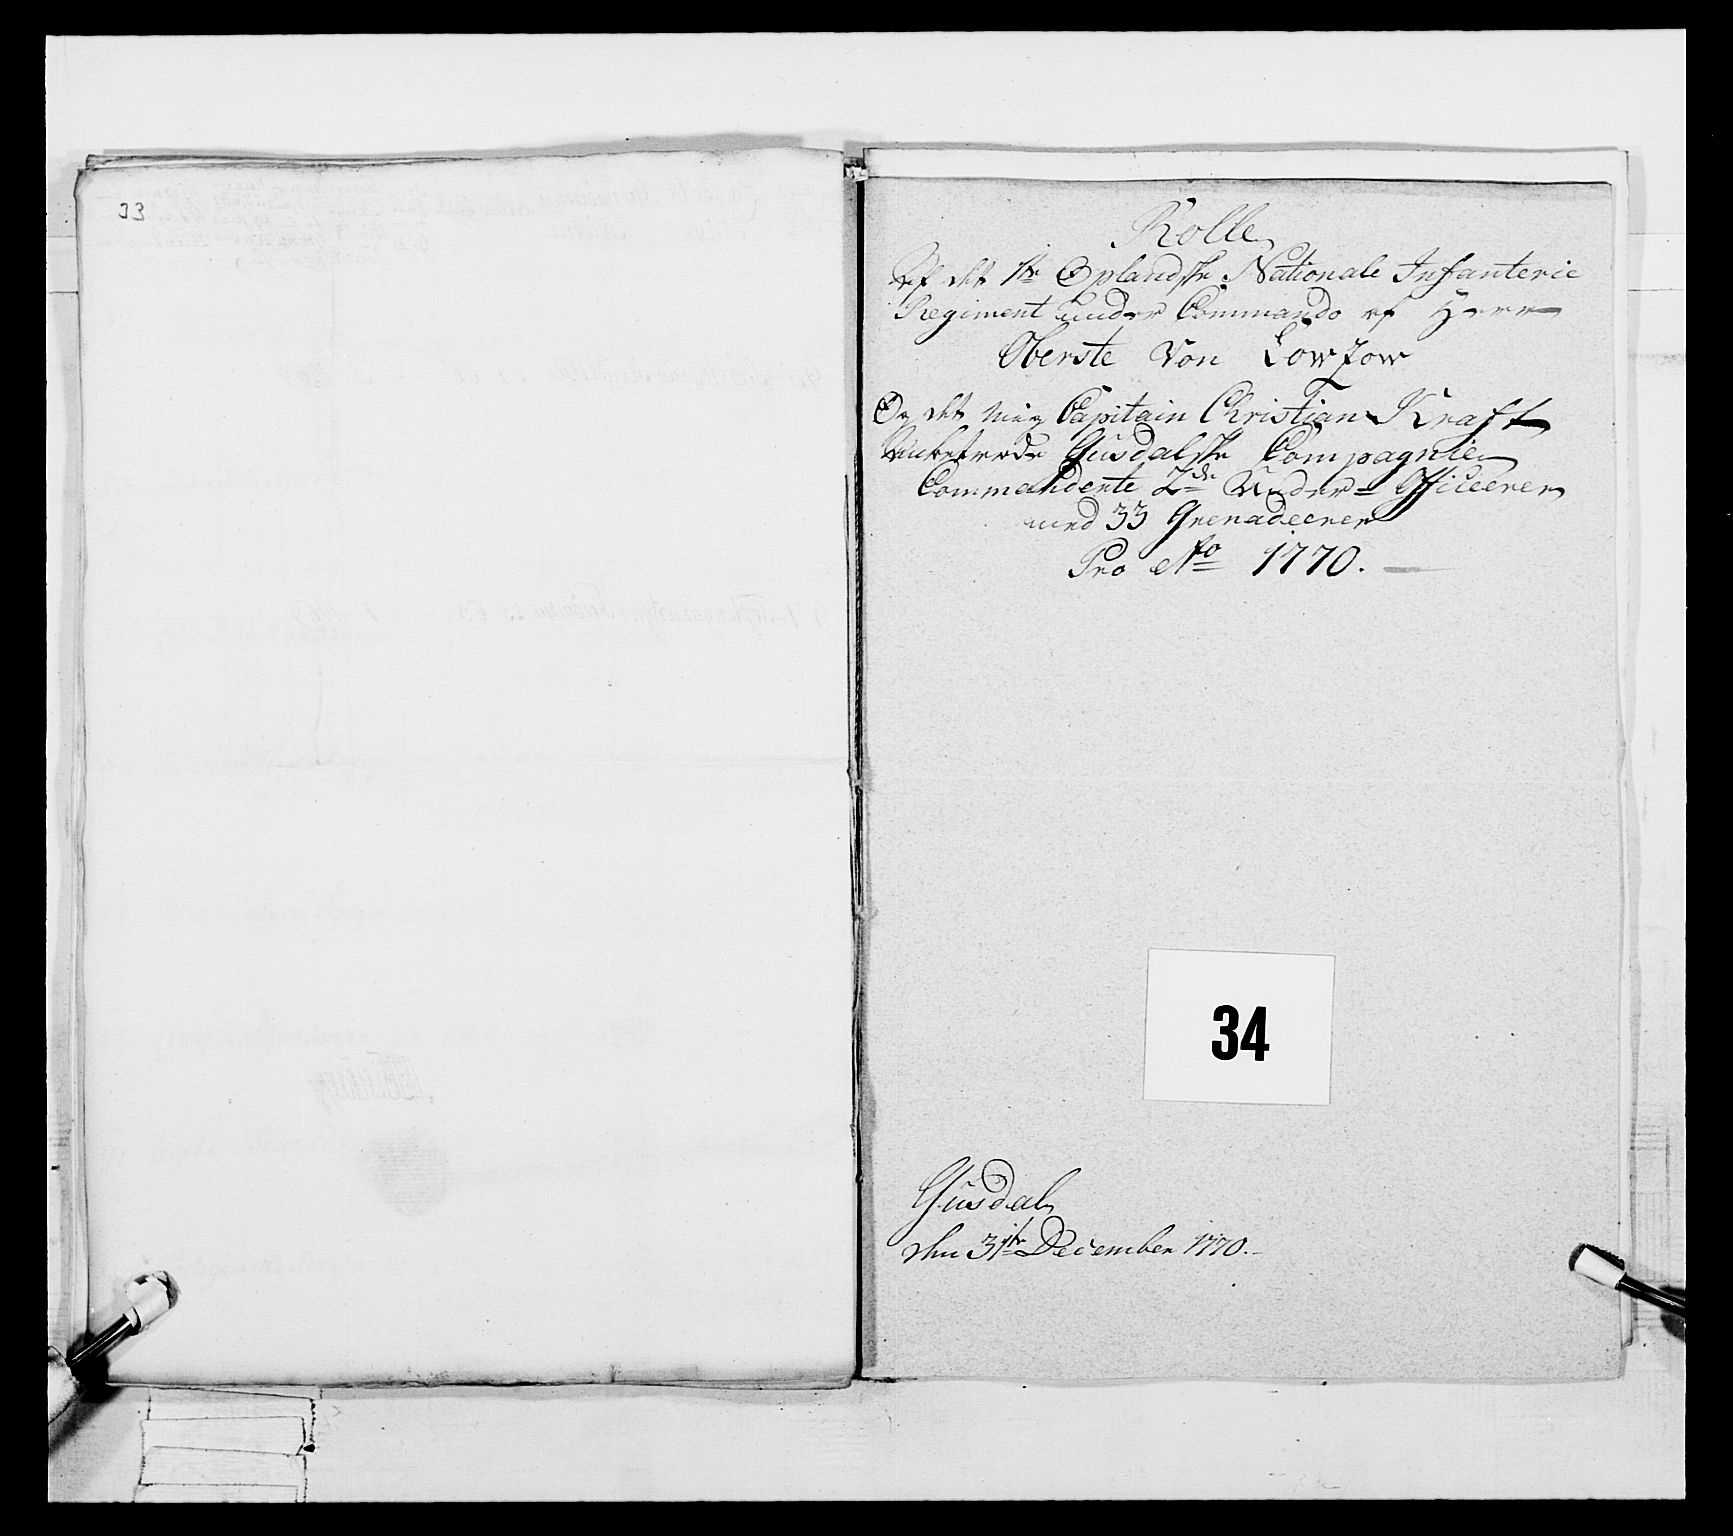 33
Rolle
Af det 1te Oplandske Nationale Infanterie
Regiment under Commando af Herr
Oberste von Lowzow
Og det mig Capitain Christian Kraft
Gusdalske Compagnie
Commanderte 2de Under-Officeerer
med 33 Grenadeerer
Pro Ao 1770.
34
Gusdal
den 31te December 1770.